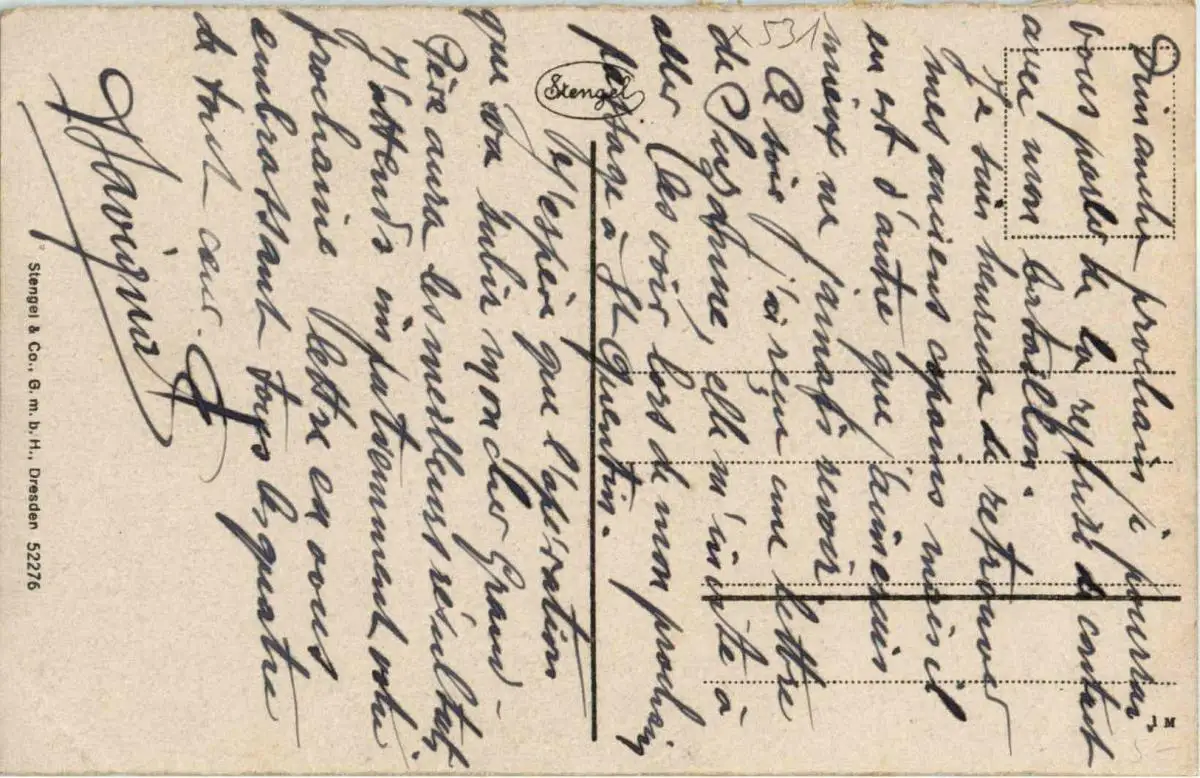 Dimanche prochain je pourrai
vous parler de la reprise de contact
avec mon bataillon.
Je suis heureux de retrouver
mes anciens copains mais il
en est d'autre que j'aimerais
mieux ne jamais revoir
Ce soir j'ai reçu une lettre
de Suzanne, elle m'invite à
aller les voir lors de mon prochain
passage à St Quentin.
J'espère que l'opération
que va subir mon cher Grand-
Père aura les meilleurs résultats
J'attends impatiemment votre
prochaine lettre en vous
embrassant tous les quatre
de tout cœur.
x 531
Stengel
Stengel & Co., G. m. b. H., Dresden 52276
1 M